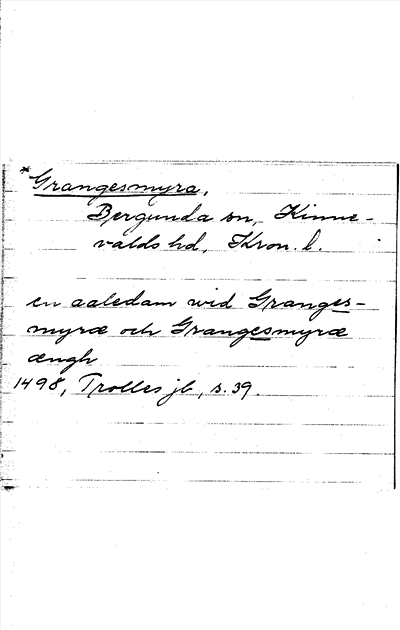 *Grangesmyra,
Bergunda sn, Kinne-
valds hd, Kron. l.
en aaledam wid Granges-
myræ och Grangesmyræ
ængh
1498, Trolles jb, s. 39.